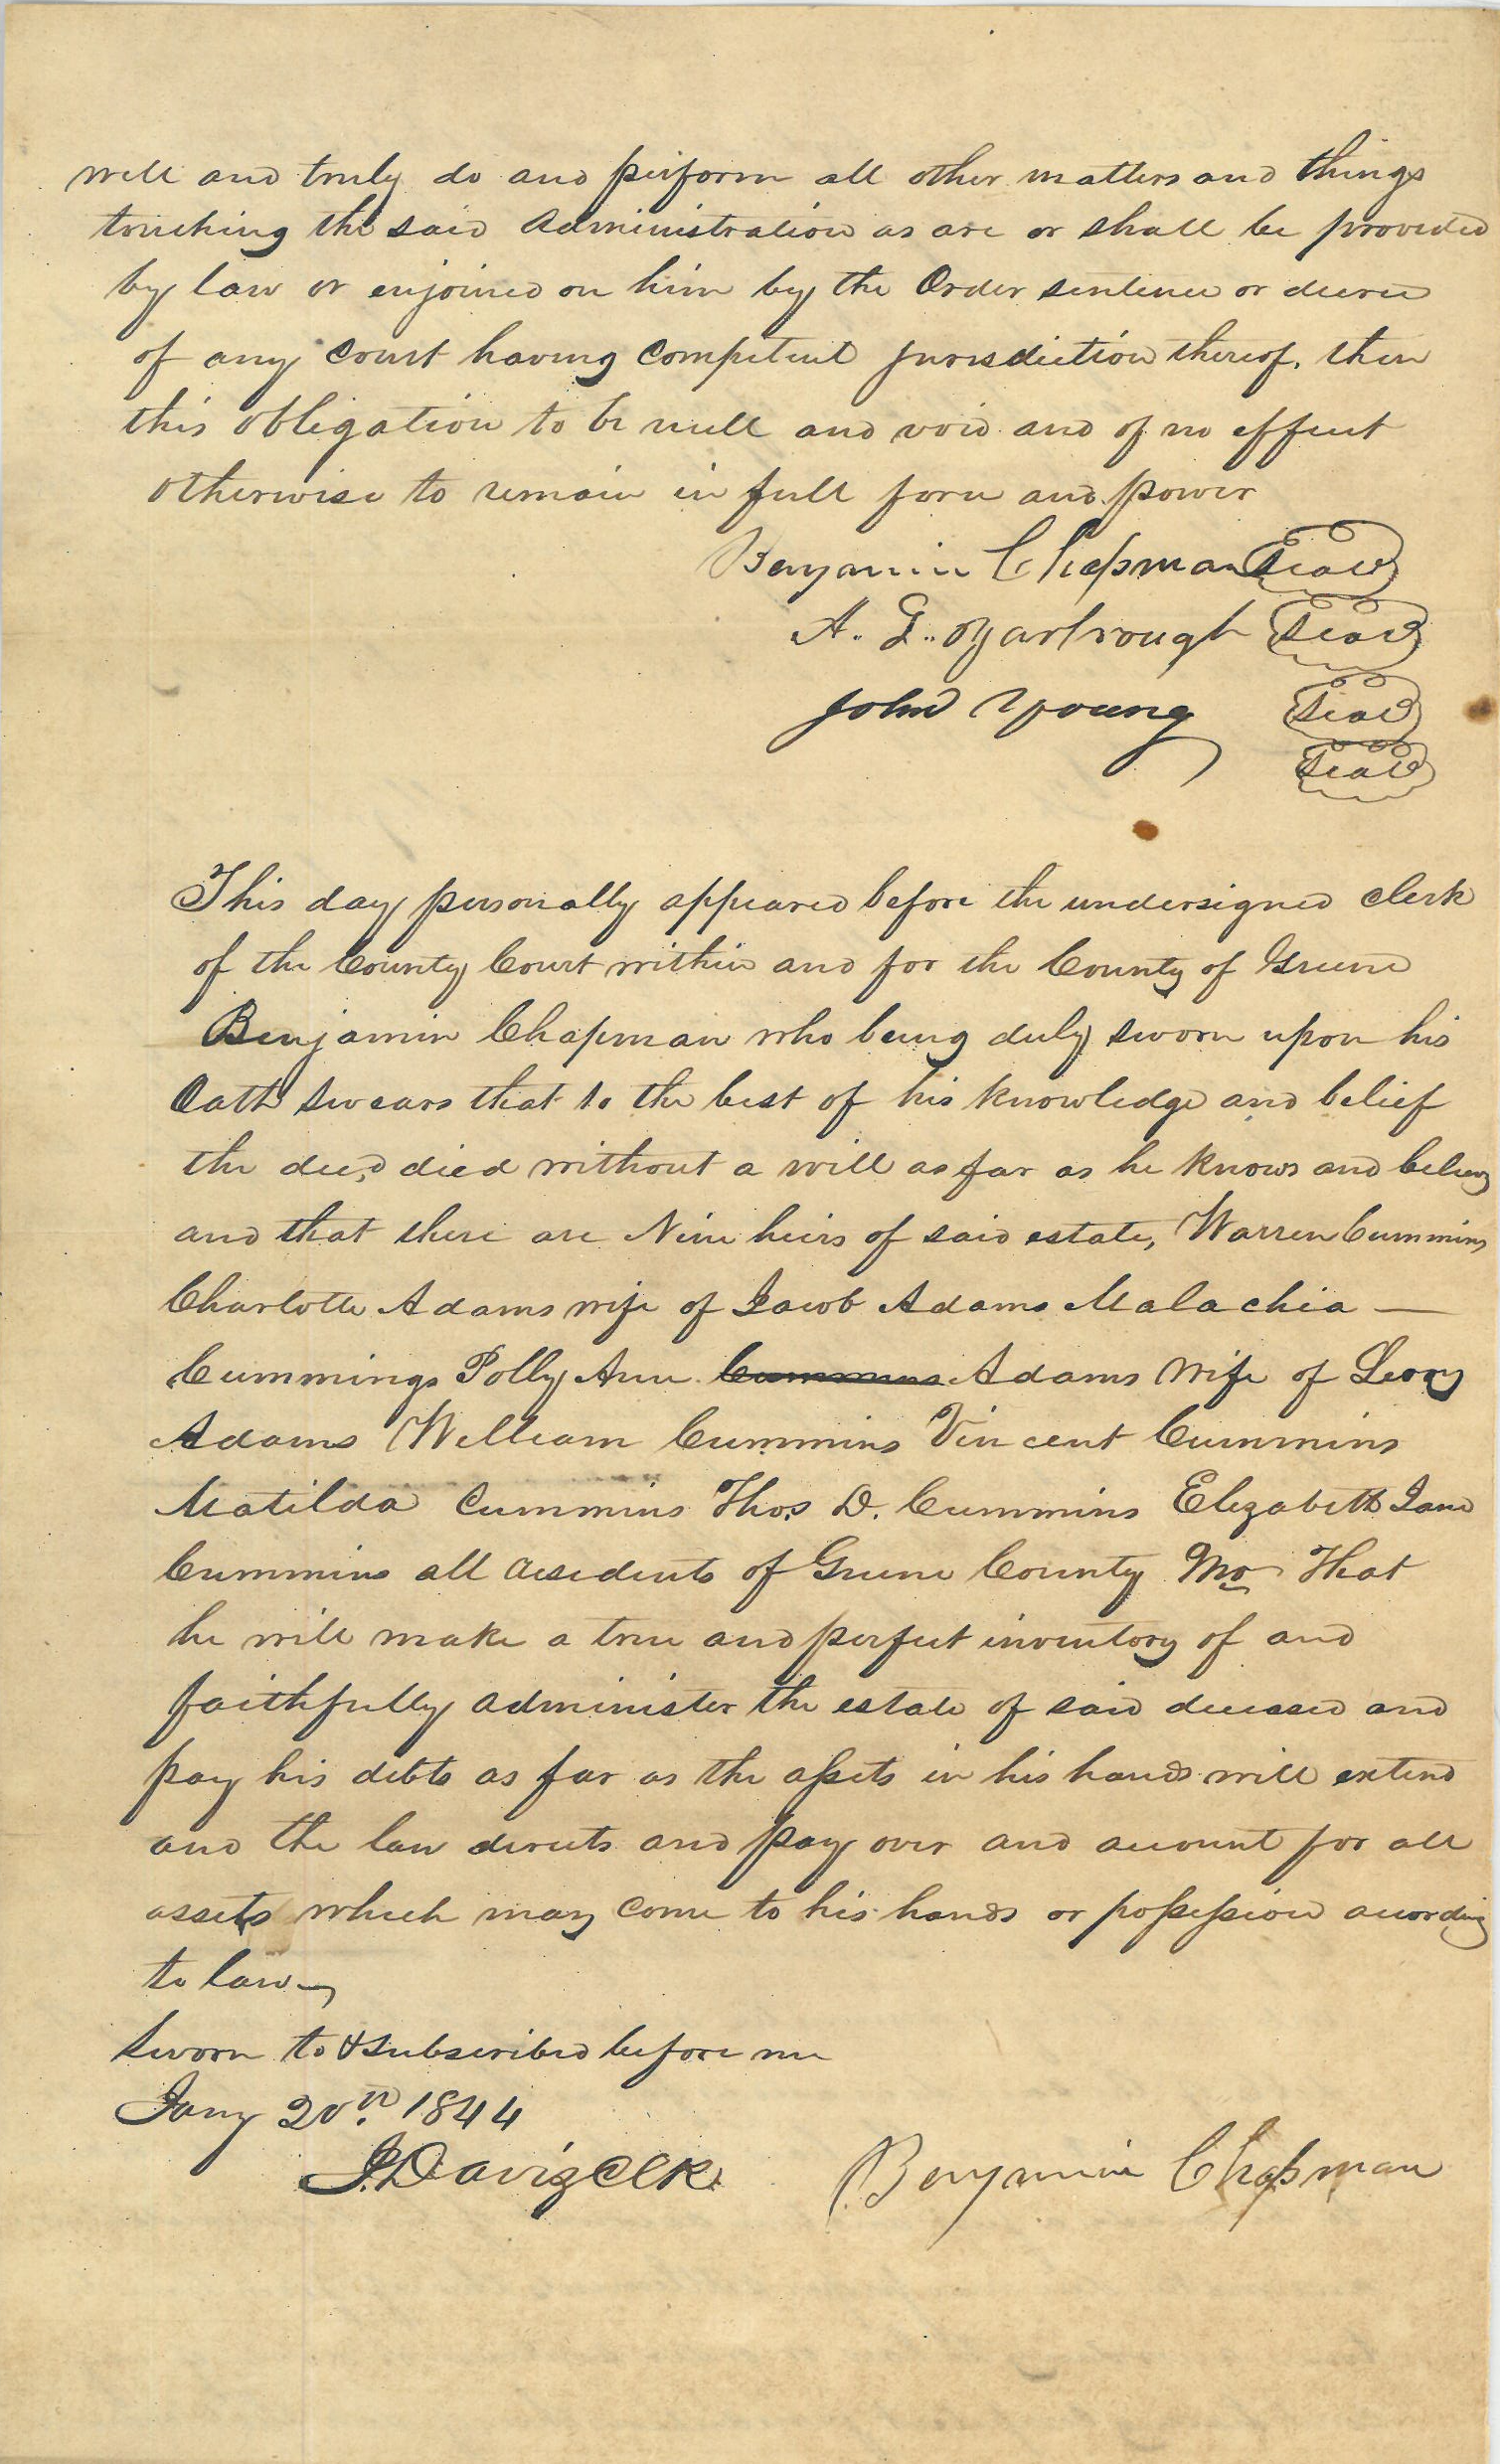 well and truly do and perform all other matters and things
touching the said Administration as are or shall be provided
by law or enjoined on him by the Order sentence or decree
of any Court having Competent jurisdiction thereof, then
this obligation to be null and void and of no effect
otherwise to remain in full force and power
Benjamin Chapman Seal
A. G. Yarbrough Seal
John Young Seal
Seal
This day personally appeared before the undersigned clerk
of the County Court within and for the County of Greene
Benjamin Chapman who being duly sworn upon his
Oath swears that to the best of his knowledge and belief
the decd died without a will as far as he knows and believs
and that there are Nine heirs of said estate, Warren Cummins
Charlotte Adams wife of Jacob Adams Malachia —
Cummings Polly Ann Cummins Adams Wife of Leroy
Adams William Cummins Vincent Cummins
Matilda Cummins Thos D. Cummins Elizabeth Jane
Cummins all residents of Greene County Mo That
he will make a true and perfect inventory of and
faithfully administer the estate of said deceased and
pay his debts as far as the assets in his hands will extend
and the law directs and pay over and account for all
assets which may come to his hands or possession acording
to law
Sworn to & subscribed before me
Jany 20th 1844
J. Davis Clk Benjamin Chapman